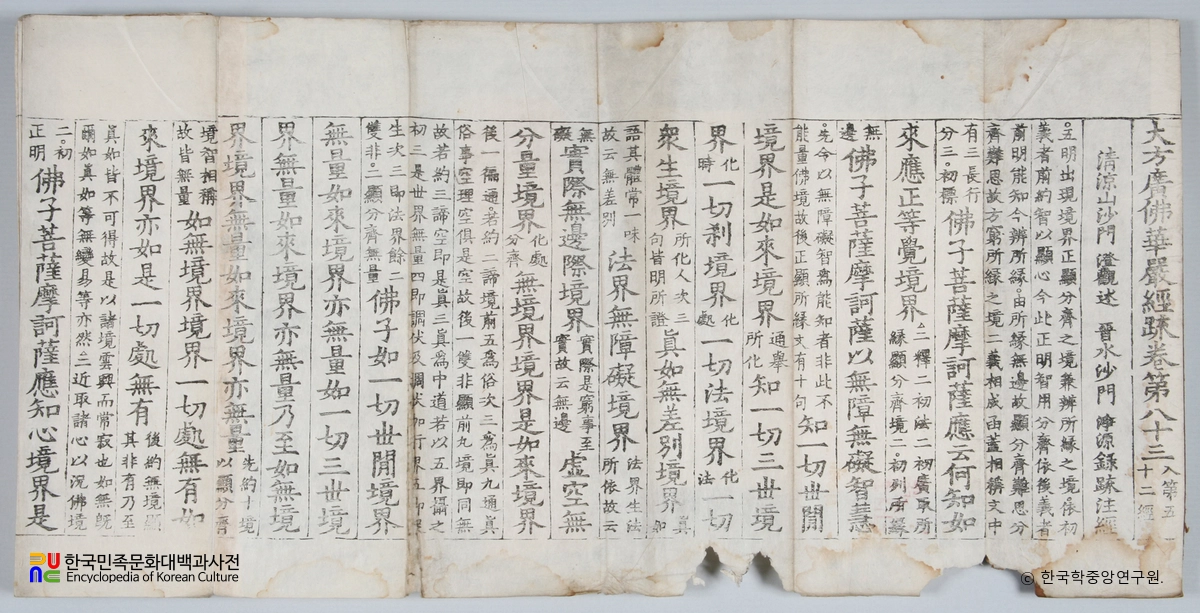 大方廣佛華嚴經疏卷第八十三 入第五十二經
清涼山沙門 澄觀述 晉水沙門 淨源錄疏注經
五明出現境界正顯分齊之境兼辨所緣之境依初
義者前約智以顯心今此正明智用分齊依後義者
前明能知今辨所緣由所緣無邊故顯分齊難思分
齊難思故方窮所緣之境二義相成函蓋相稱文中
有三長行
分三初標 佛子菩薩摩訶薩應云何知如
來應正等覺境界
佛子菩薩摩訶薩以無障無礙智慧
無邊
先今以無障礙智為能知者非此不
能量佛境故後正顯所緣文有十句 知一切世間
境界是如來境界 通舉所化 知一切三世境
界 化時 一切刹境界 化處 一切法境界 化法 一切
衆生境界 所化人次三句皆明所證 眞如無差別境界
語其體常一味
故云無差別 法界無障礙境界 法界生法所依故云
無礙 實際無邊際境界 實際是窮事至實故云無邊 虛空無
分量境界 化處分齊 無境界境界是如來境界
後一徧通若約二諦境前五爲俗次三爲眞九通眞
俗事空理空俱是空故後一雙非顯前九境即同無
故若約三諦空即是眞三眞爲中道若以五界攝之
初三是世界無量四即調伏
生次三即法界餘二
雙非二顯分齊無量 佛子如一切世間境界
無量如來境界亦無量如一切三世境
界無量如來境界亦無量乃至如無境
界境界無量如來境界亦無量 先約十境以顯分齊
境智相稱
故皆無量 如無境界境界一切處無有如
來境界亦如是一切處無有 後約無境顯其非有乃至
眞如皆不可得故是以諸境雲興而常寂也如無旣
爾如眞如等無變易等亦然 二近取諸心以況佛境
二初
正明 佛子菩薩摩訶薩應知心境界是
한국민족문화대백과사전
Encyclopedia of Korean Culture
ⓒ 한국학중앙연구원.